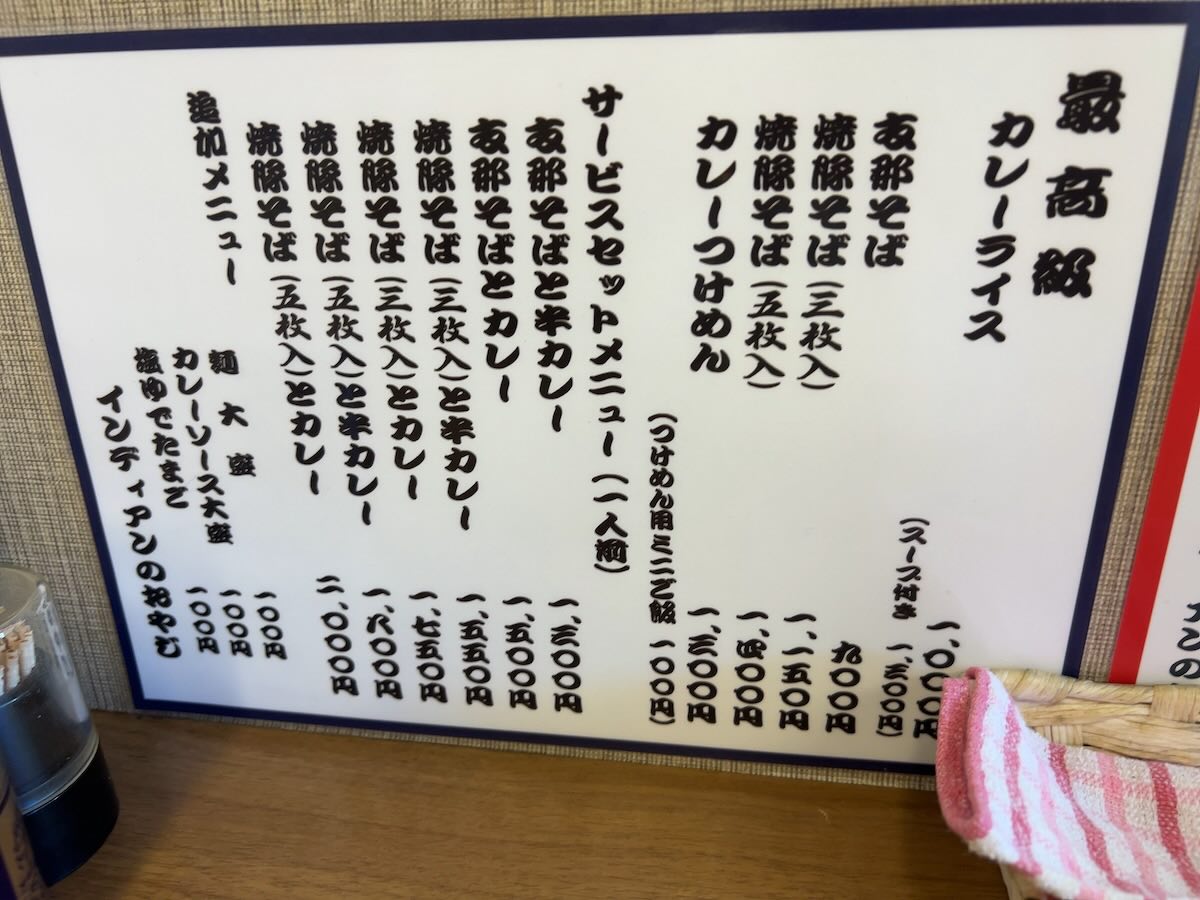 最高級
カレーライス 一、〇〇〇円
(スープ付き 一、三〇〇円)
支那そば 九〇〇円
焼豚そば(三枚入) 一、一五〇円
焼豚そば(五枚入) 一、四〇〇円
カレーつけめん 一、三〇〇円
(つけめん用ミニご飯 一〇〇円)
サービスセットメニュー(一人前)
支那そばと半カレー 一、三〇〇円
支那そばとカレー 一、五〇〇円
焼豚そば(三枚入)と半カレー 一、五五〇円
焼豚そば(三枚入)とカレー 一、七五〇円
焼豚そば(五枚入)と半カレー 一、八〇〇円
焼豚そば(五枚入)とカレー 二、〇〇〇円
追加メニュー
麺大盛 一〇〇円
カレーソース大盛 一〇〇円
塩ゆでたまご 一〇〇円
インディアンのおやじ